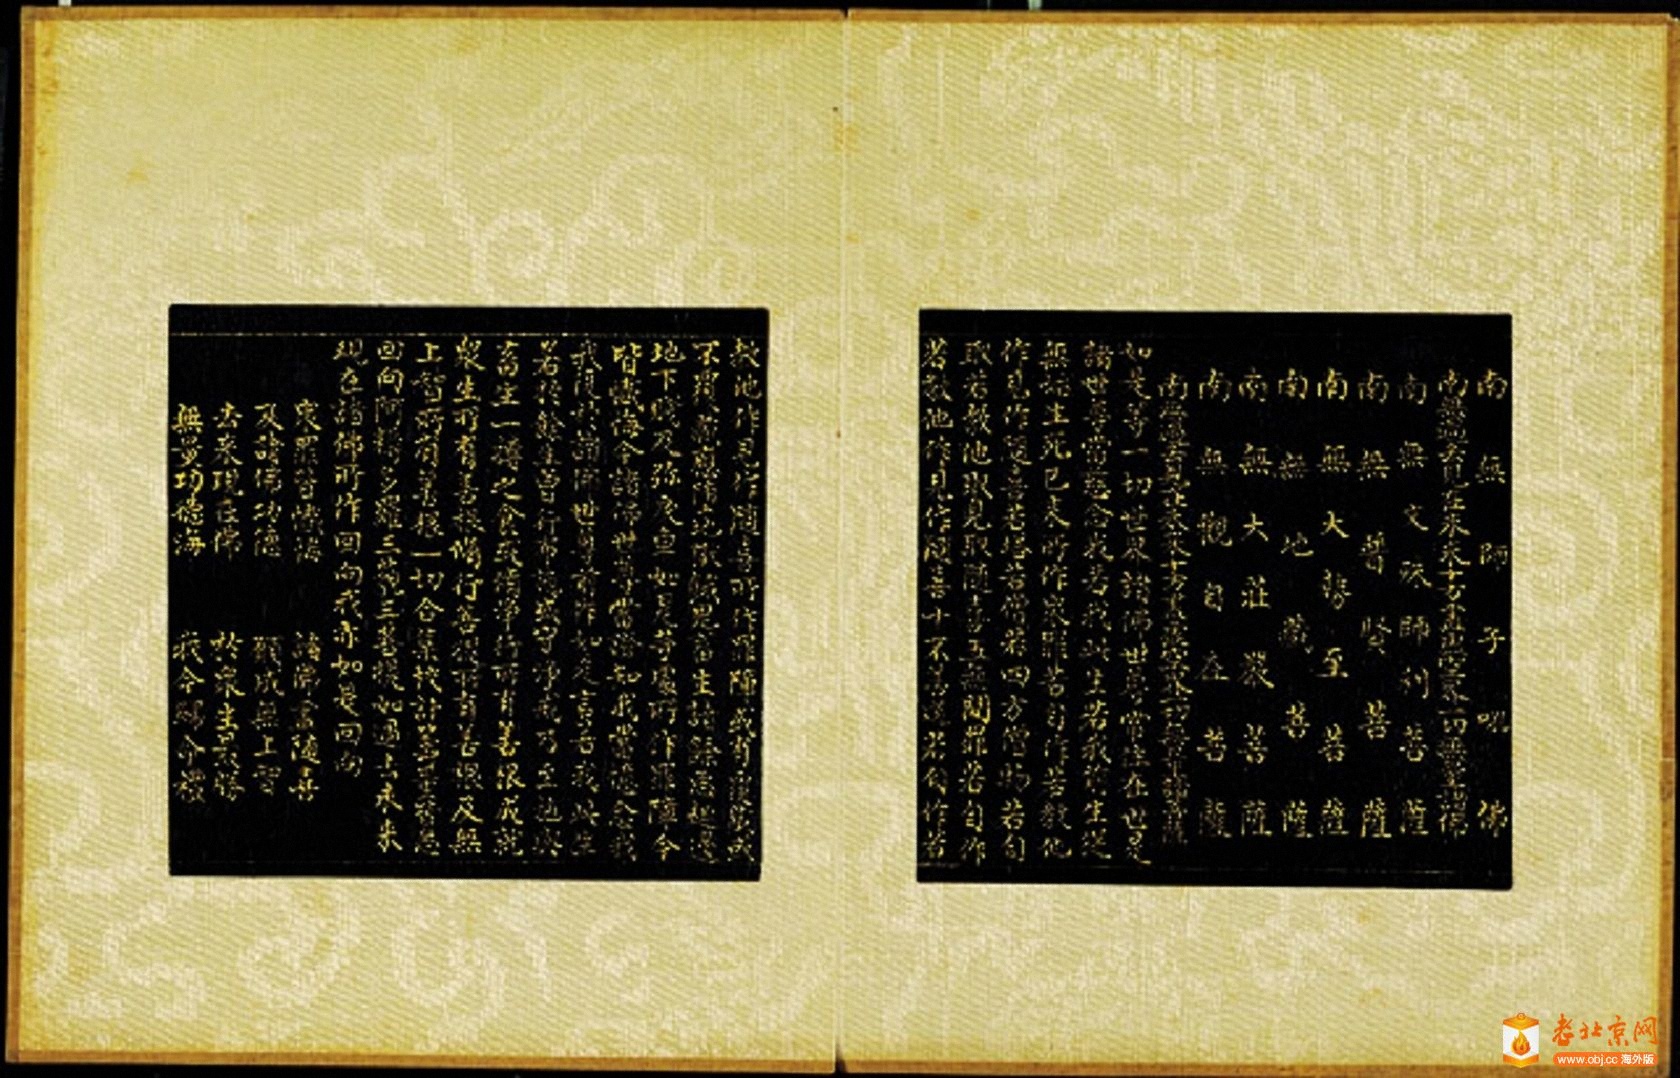 南無師子吼佛
南無過去見在未來十方盡虛空界一切諸佛
南無文殊師利菩薩
南無普賢菩薩
南無大勢至菩薩
南無地藏菩薩
南無大莊嚴菩薩
南無觀自在菩薩
南無過去見在未來十方盡虛空界一切諸菩薩
如是等一切世界諸佛世尊常住在世是
諸世尊當慈念我若我此生若我前生從
無始生死已來所作眾罪若自作若教他
作見作隨喜若塔若僧若四方僧物若自
取若教他取見取隨喜五無間罪若自作
若教他作見作隨喜十不善道若自作若
教他作見作隨喜所作罪障或有覆藏或
不覆藏應墮地獄餓鬼畜生諸餘惡趣邊
地下賤及彌戾車如是等處所作罪障今
皆懺悔今諸佛世尊當證知我當憶念我
我復於諸佛世尊前作如是言若我此生
若於餘生曾行布施或守淨戒乃至施與
畜生一摶之食或脩淨行所有善根成就
眾生所有善根脩行菩提所有善根及無
上智所有善根一切合集校計籌量皆悉
回向阿耨多羅三藐三菩提如過去未來
現在諸佛所作回向我亦如是回向
眾罪皆懺悔 諸佛盡隨喜
及請佛功德 願成無上智
去來現在佛 於眾生最勝
無量功德海 我今歸命禮
老北京网
www.obj.cc 海外版